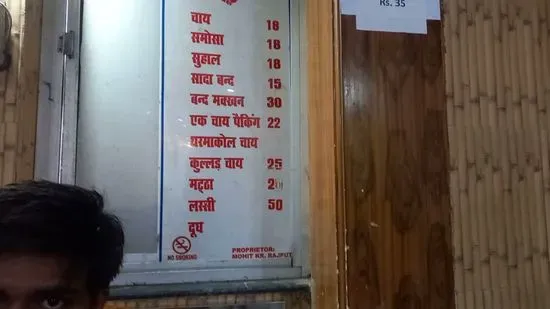 Rs. 35
चाय 18
समोसा 18
सुहाल 18
सादा बन्द 15
बन्द मक्खन 30
एक चाय पैकिंग 22
थरमाकोल चाय
कुल्लड़ चाय 25
मट्ठा 20
लस्सी 50
दूध
NO SMOKING
PROPRIETOR:
MOHIT KR. RAJPUT